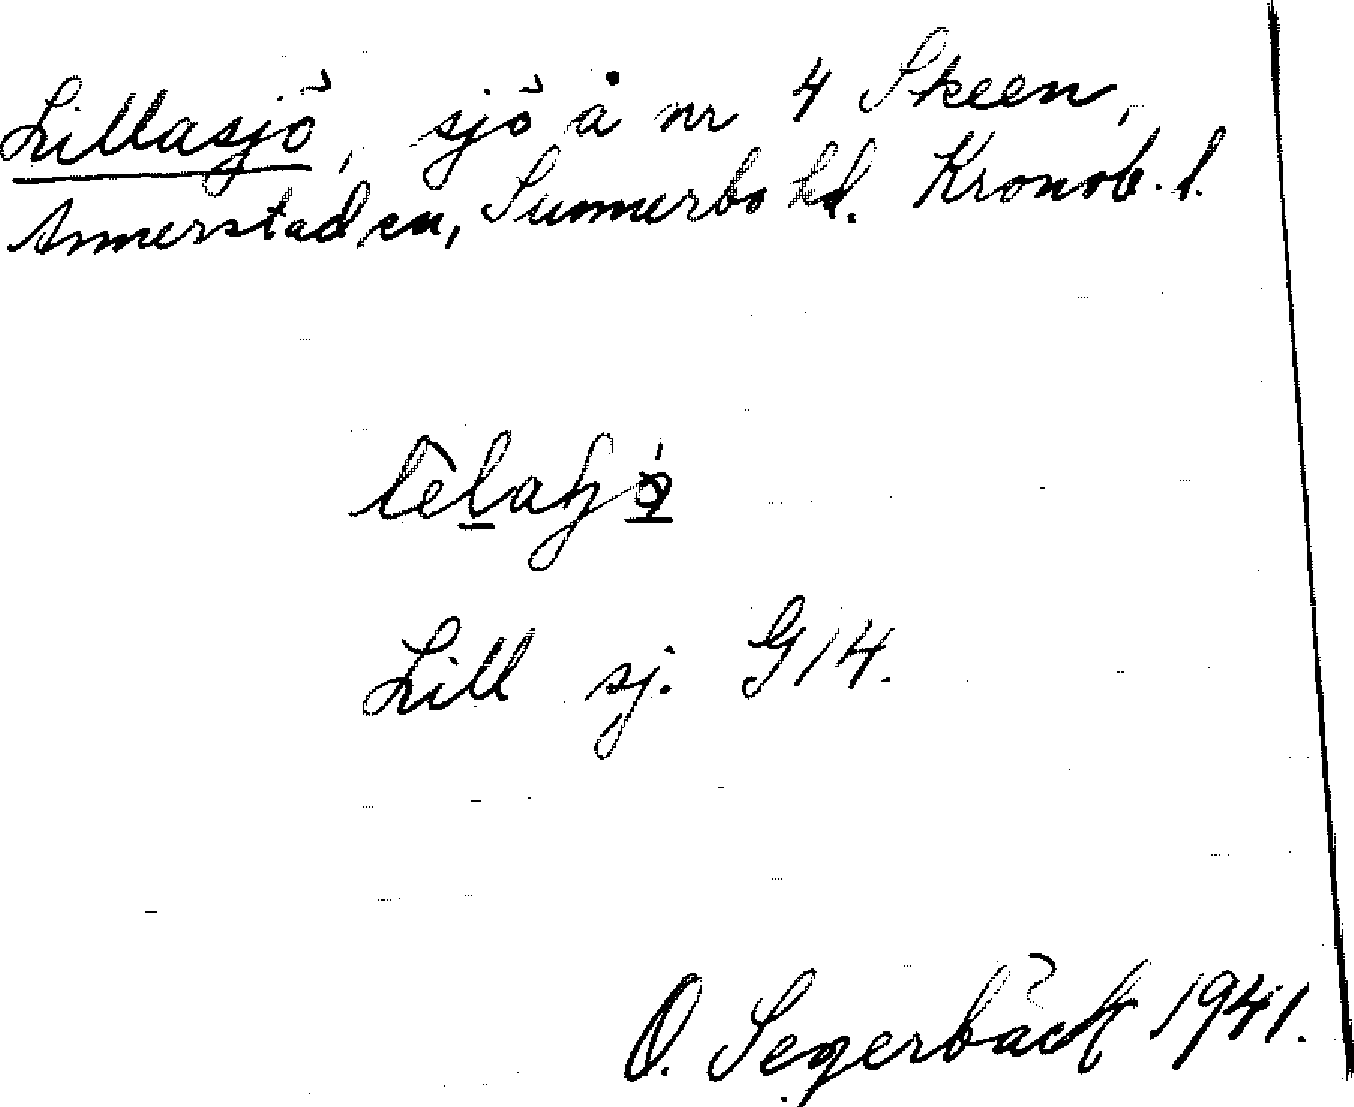 Lillasjö, sjö å nr 4 Skeen,
Annerstad sn, Sunnerbo hd. Kronob. l.
Lill sj. G14.
O. Segerbäck 1941.